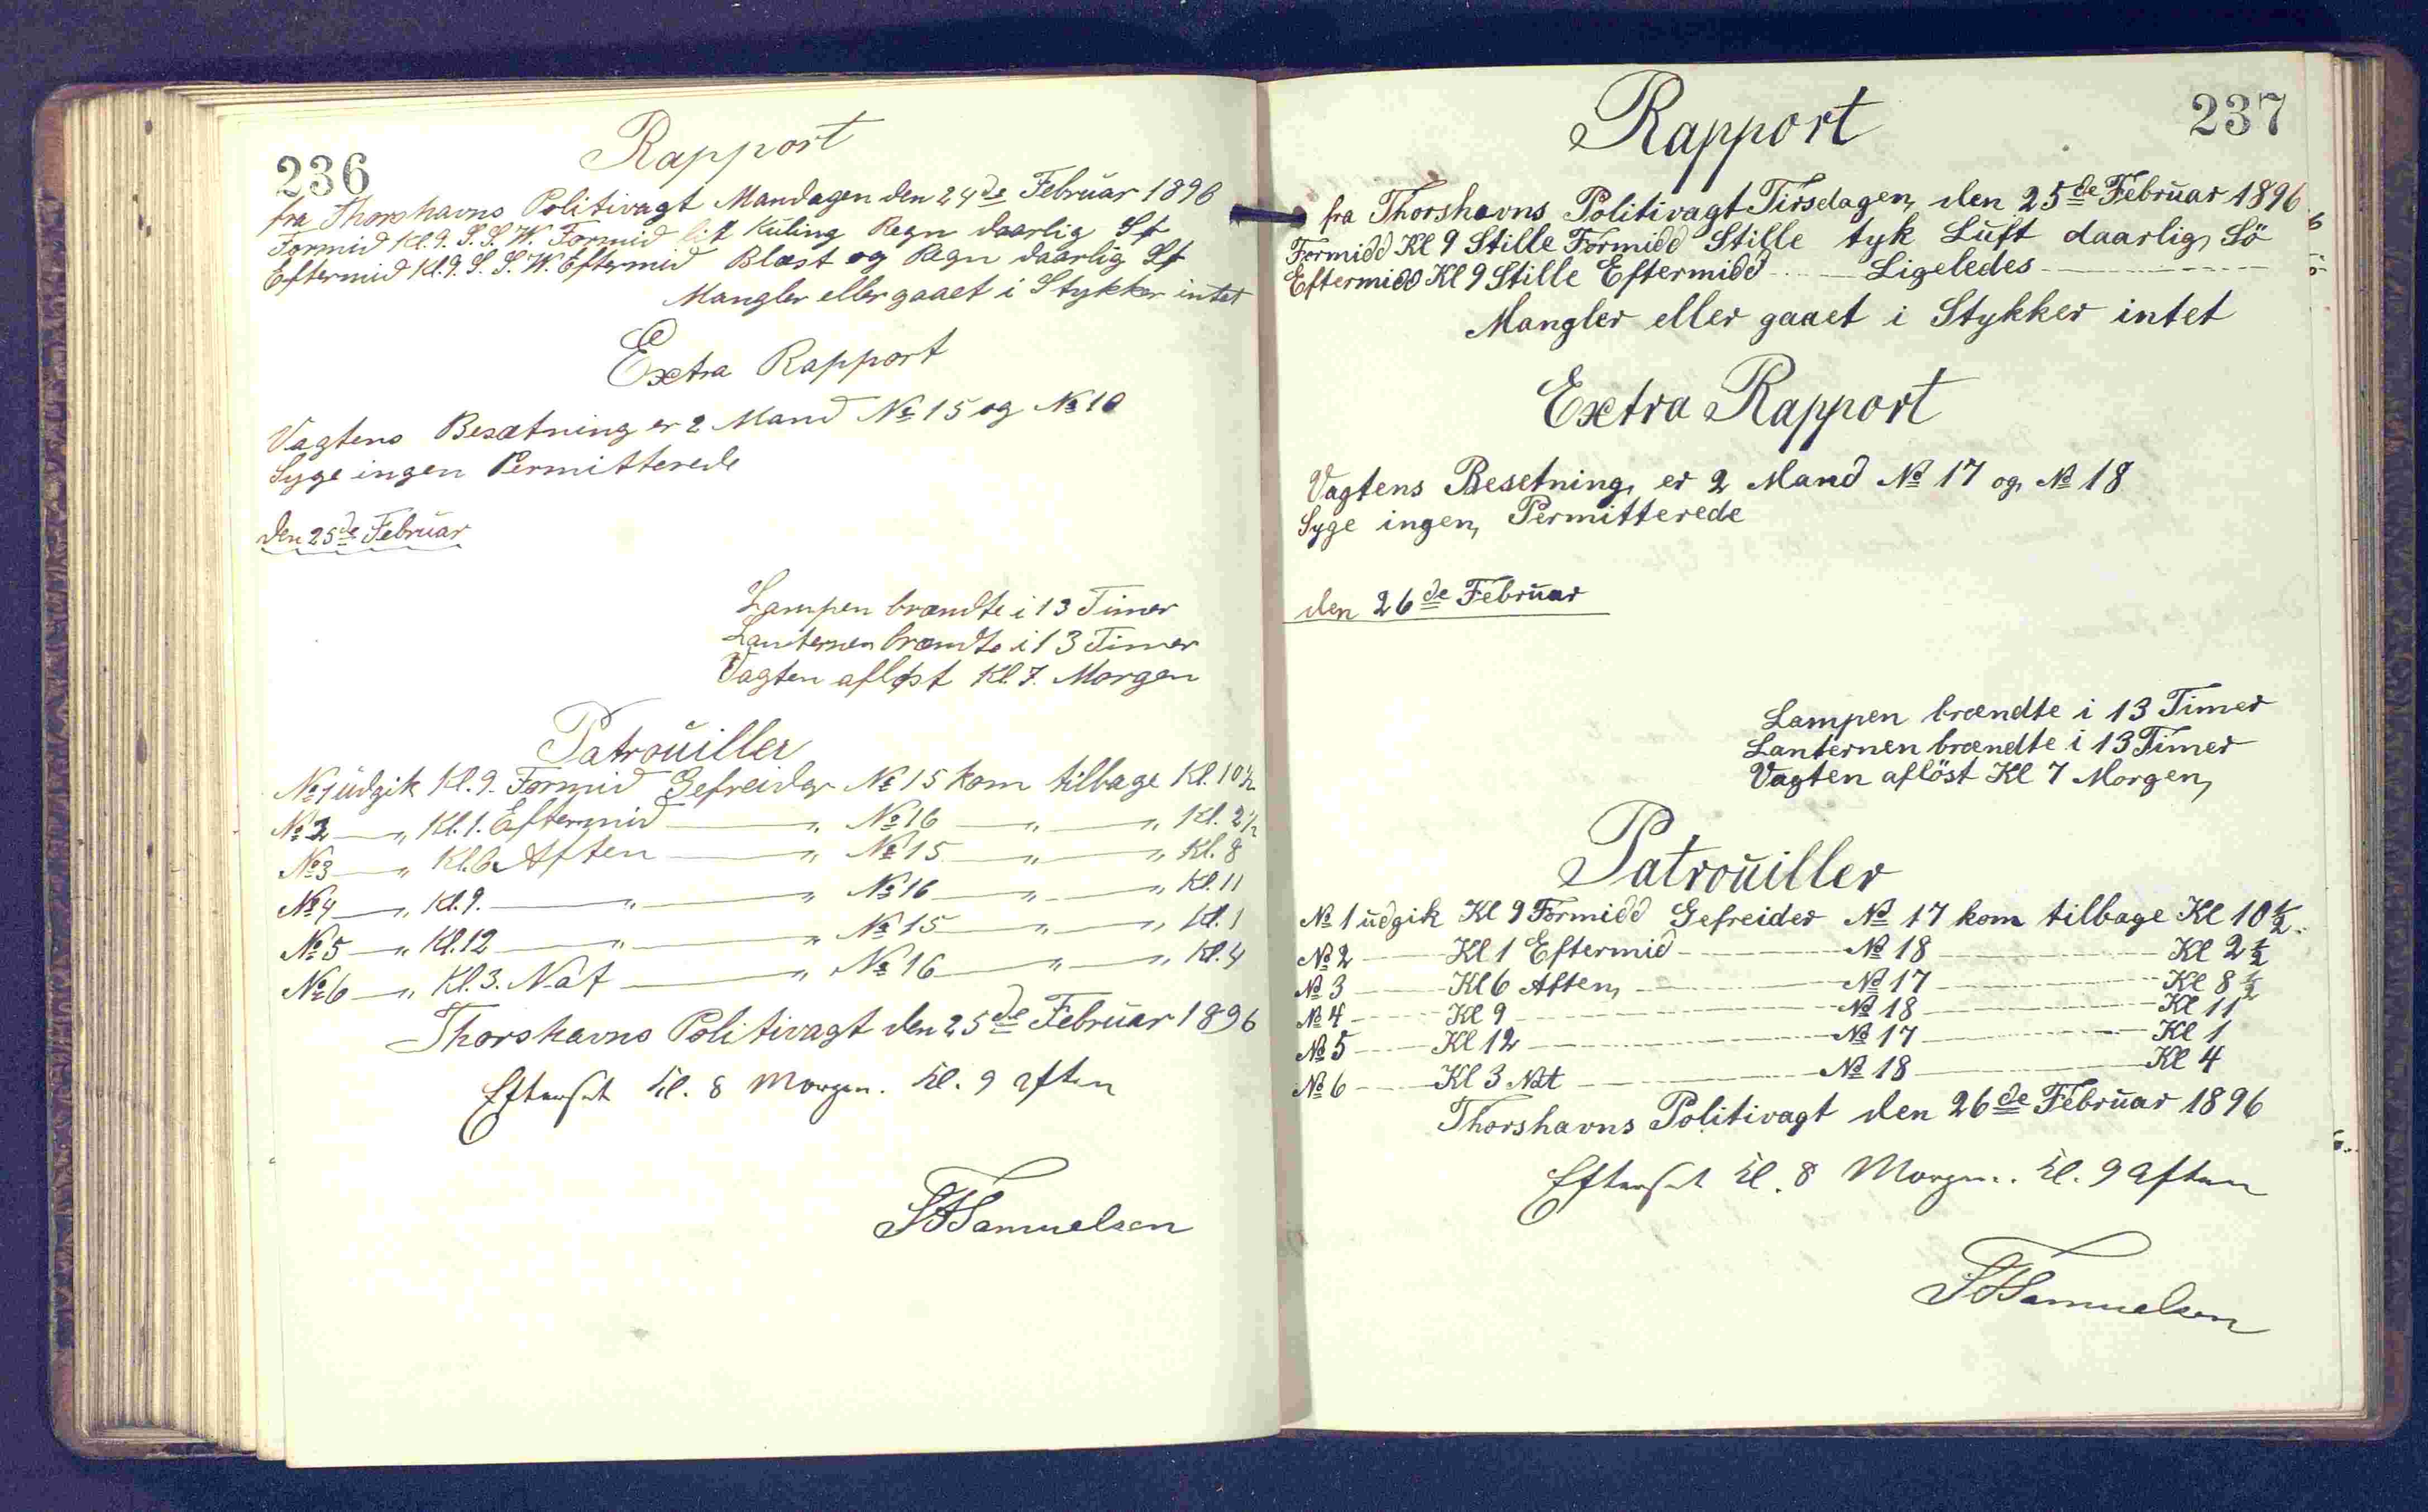 236
Rapport
fra Thorshavns Politivagt Mandagen den 24de Februar 1896
Formid Kl. 9. S. S. W. Formid lit Kuling Regn daarlig Sø
Eftermid Kl. 9. S. S. W. Eftermid Blæst og Regn daarlig Sø
Mangler eller gaaet i Stykker intet
Extra Rapport
Vagtens Besætning er 2 Mand No 15 og No 16
Syge ingen Permitterede
den 25de Februar
Lampen brændte i 13 Timer
Lanternen brændte i 13 Timer
Vagten afløst Kl. 7. Morgen
Patrouiller
No 1 udgik Kl. 9. Formid Gefreider No 15 kom tilbage Kl. 10½
No 2 — „ Kl. 1. Eftermid — „ No 16 — „ — „ Kl. 2½
No 3 — „ Kl. 6 Aften — „ No 15 — „ — „ Kl. 8
No 4 — „ Kl. 9. — „ — „ No 16 — „ — „ Kl. 11
No 5 — „ Kl. 12 — „ — „ No 15 — „ — „ Kl. 1
No 6 — „ Kl. 3. Nat — „ No 16 — „ — „ Kl. 4
Thorshavns Politivagt den 25de Februar 1896
Efterset Kl. 8 Morgen. Kl. 9 Aften
Samuelsen
237
Rapport
fra Thorshavns Politivagt Tirsdagen den 25de Februar 1896
Formidd Kl 9 Stille Formidd Stille tyk Luft daarlig Sö
Eftermidd Kl 9 Stille Eftermidd — Ligeledes —
Mangler eller gaaet i Stykker intet
Extra Rapport
Vagtens Besetning er 2 Mand No 17 og No 18
Syge ingen Permitterede
den 26de Februar
Lampen brændte i 13 Timer
Lanternen brændte i 13 Timer
Vagten aflöst Kl 7 Morgen
Patrouiller
No 1 udgik Kl 9 Formidd Gefreider No 17 kom tilbage Kl 10½
No 2 — Kl 1 Eftermid — No 18 — Kl 2½
No 3 — Kl 6 Aften — No 17 — Kl 8½
No 4 — Kl 9 — No 18 — Kl 11
No 5 — Kl 12 — No 17 — Kl 1
No 6 — Kl 3 Nat — No 18 — Kl 4
Thorshavns Politivagt den 26de Februar 1896
Efterset Kl. 8 Morgen. Kl. 9 Aften
Samuelsen